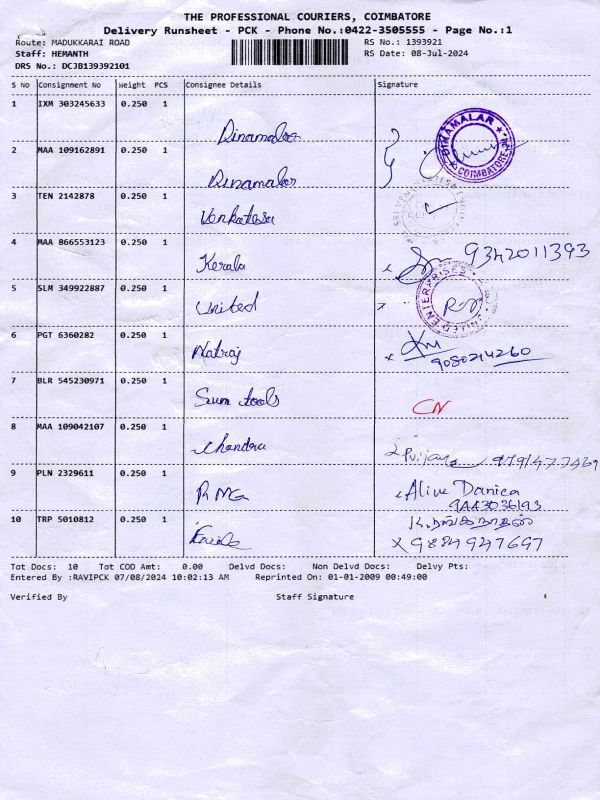 THE PROFESSIONAL COURIERS, COIMBATORE
Delivery Runsheet - PCK - Phone No.:0422-3505555 - Page No.:1
Route: MADUKKARAI ROAD RS No.: 1393921
Staff: HEMANTH RS Date: 08-Jul-2024
DRS No.: DCJB139392101
S No Consignment No Weight PCS Consignee Details Signature
1 IXM 303245633 0.250 1 Dinamalar
DINAMALAR COIMBATORE
2 MAA 109162891 0.250 1 Dinamalar
3 TEN 2142878 0.250 1 Venkatesa
4 MAA 866553123 0.250 1 Kerala 9342011393
5 SLM 349922887 0.250 1 United
UNITED ENTERPRISES
6 PGT 6360282 0.250 1 Natraj
9080214260
7 BLR 545230971 0.250 1 Sum tools CN
8 MAA 109042107 0.250 1 Chandra
9 PLN 2329611 0.250 1 RMG Alive Danica
10 TRP 5010812 0.250 1
Tot Docs: 10 Tot COD Amt: 0.00 Delvd Docs: Non Delvd Docs: Delvy Pts:
Entered By :RAVIPCK 07/08/2024 10:02:13 AM Reprinted On: 01-01-2009 00:49:00
Verified By Staff Signature